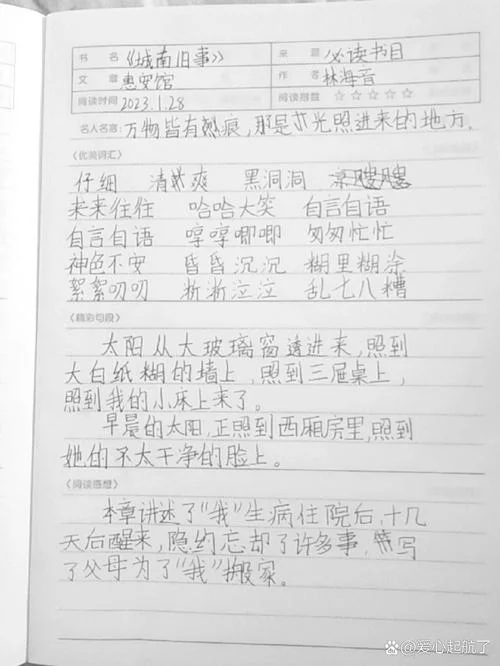 书 名 《城南旧事》 来 源 必读书目
文 章 惠安馆 作 者 林海音
阅读时间 2023.1.28 阅读指数 ☆☆☆☆☆
名人名言: 万物皆有裂痕,那是光照进来的地方。
〈优美词汇〉
仔细 清爽 黑洞洞 凉飕飕
来来往往 哈哈大笑 自言自语
自言自语 哼哼唧唧 匆匆忙忙
神色不安 昏昏沉沉 糊里糊涂
絮絮叨叨 淅淅泣泣 乱七八糟
〈精彩句段〉
太阳从大玻璃窗透进来,照到
大白纸糊的墙上,照到三屉桌上,
照到我的小床上来了。
早晨的太阳,正照到西厢房里,照到
她的不太干净的脸上。
〈阅读感想〉
本章讲述了“我”生病住院后,十几
天后醒来,隐约忘却了许多事,写
了父母为了“我”搬家。
爱心起航了